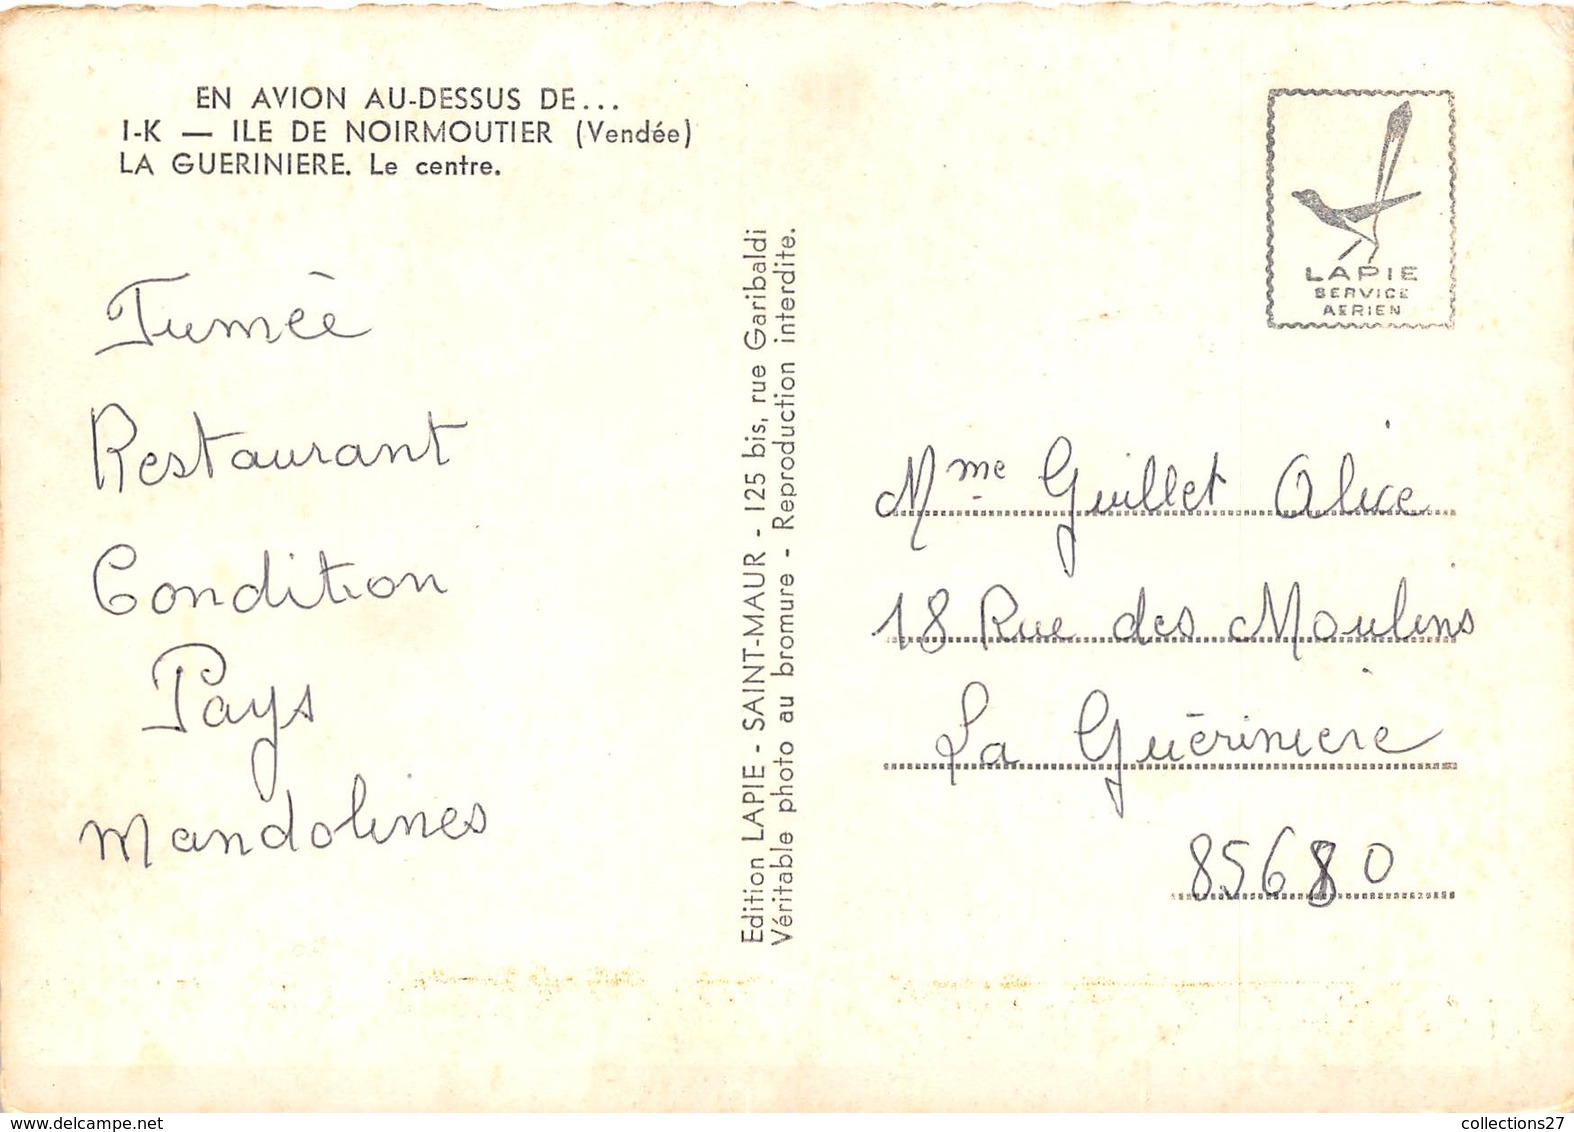 EN AVION AU-DESSUS DE...
I-K — ILE DE NOIRMOUTIER (Vendée)
LA GUERINIERE. Le centre.
Fumèe
Restaurant
Condition
Pays
Mandolines
Edition LAPIE - SAINT-MAUR - 125 bis, rue Garibaldi
Véritable photo au bromure - Reproduction interdite.
LAPIE
SERVICE
AERIEN
Mme Guillet Alice
18 Rue des Moulins
La Guèriniere
85680
collections27